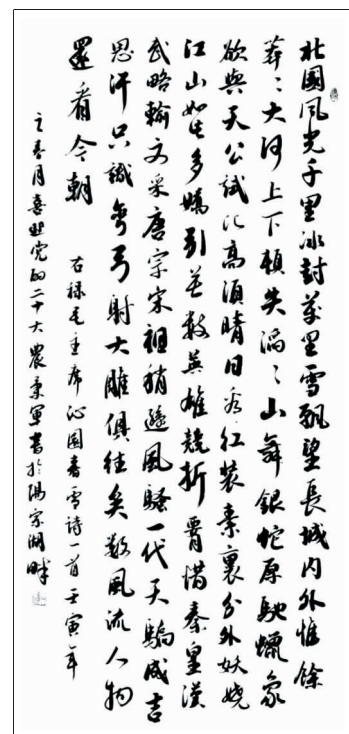 北國風光千里冰封萬里雪飄望長城内外惟餘
莽〻大河上下頓失滔〻山舞銀蛇原馳蠟象
欲與天公試比高須晴日看红裝素裹分外妖嬈
江山如此多嬌引無數英雄競折腰惜秦皇漢
武略輸文采唐宗宋祖稍遜風騷一代天驕成吉
思汗只識彎弓射大雕俱往矣數風流人物
還看今朝 右録毛主席沁園春雪詩一首壬寅年
之春月喜迎党的二十大農秉軍書於陽宗湖畔